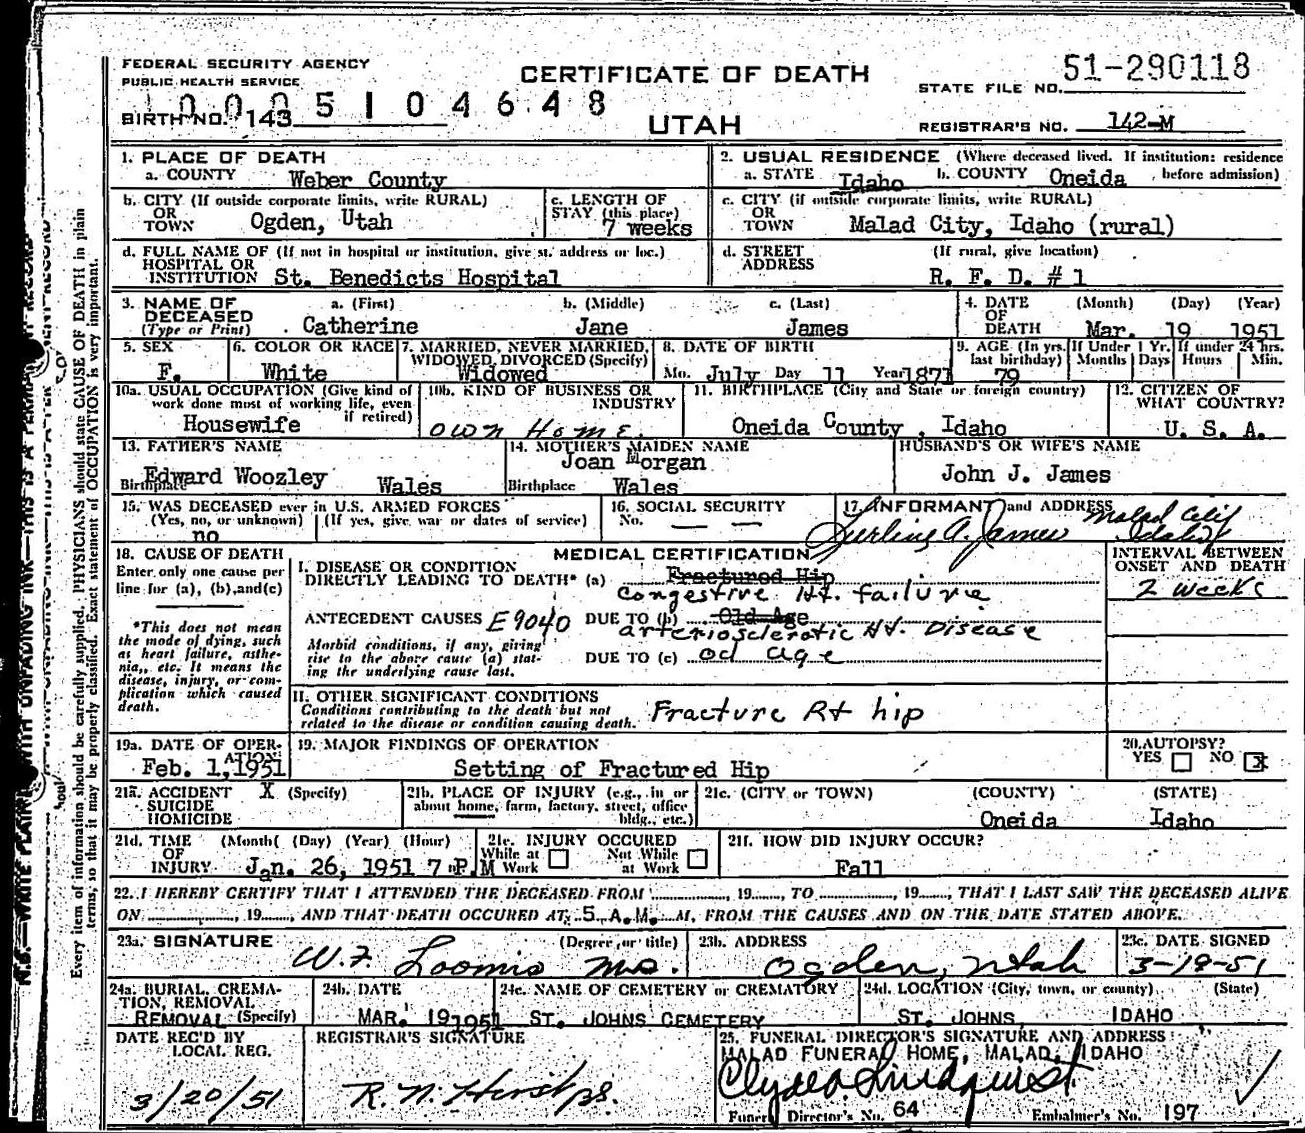 FEDERAL SECURITY AGENCY
PUBLIC HEALTH SERVICE
CERTIFICATE OF DEATH
51-290118
STATE FILE NO.
0005104648
BIRTH NO. 143
UTAH
REGISTRAR'S NO. 142-M
1. PLACE OF DEATH
a. COUNTY Weber County
2. USUAL RESIDENCE (Where deceased lived. If institution: residence before admission)
a. STATE Idaho b. COUNTY Oneida
b. CITY (If outside corporate limits, write RURAL)
OR TOWN Ogden, Utah
c. LENGTH OF STAY (this place)
7 weeks
c. CITY (if outside corporate limits, write RURAL)
OR TOWN Malad City, Idaho (rural)
d. FULL NAME OF (If not in hospital or institution, give st. address or loc.)
HOSPITAL OR
INSTITUTION St. Benedicts Hospital
d. STREET ADDRESS (If rural, give location)
R. F. D. # 1
3. NAME OF DECEASED (Type or Print)
a. (First) b. (Middle) c. (Last)
Catherine Jane James
4. DATE OF DEATH (Month) (Day) (Year)
Mar. 19 1951
5. SEX
F.
6. COLOR OR RACE
White
7. MARRIED, NEVER MARRIED, WIDOWED, DIVORCED (Specify)
Widowed
8. DATE OF BIRTH
Mo. July Day 11 Year 1871
9. AGE (In yrs. last birthday) If Under 1 Yr. Months Days If under 24 hrs. Hours Min.
79
10a. USUAL OCCUPATION (Give kind of work done most of working life, even if retired)
Housewife
10b. KIND OF BUSINESS OR INDUSTRY
own Home.
11. BIRTHPLACE (City and State or foreign country)
Oneida County, Idaho
12. CITIZEN OF WHAT COUNTRY?
U. S. A.
13. FATHER'S NAME
Edward Woozley
Birthplace Wales
14. MOTHER'S MAIDEN NAME
Joan Morgan
Birthplace Wales
HUSBAND'S OR WIFE'S NAME
John J. James
15. WAS DECEASED ever in U.S. ARMED FORCES
(Yes, no, or unknown) (If yes, give war or dates of service)
no
16. SOCIAL SECURITY
No. — —
17. INFORMANT and ADDRESS
A. James Malad
Idaho
18. CAUSE OF DEATH
Enter only one cause per line for (a), (b), and (c)
*This does not mean the mode of dying, such as heart failure, asthenia, etc. It means the disease, injury, or complication which caused death.
MEDICAL CERTIFICATION
INTERVAL BETWEEN ONSET AND DEATH
I. DISEASE OR CONDITION
DIRECTLY LEADING TO DEATH* (a) Fractured Hip
congestive Ht. failure
2 weeks
ANTECEDENT CAUSES E9040 DUE TO (b) Old Age
arteriosclerotic Ht. Disease
Morbid conditions, if any, giving rise to the above cause (a) stating the underlying cause last.
DUE TO (c) od age
II. OTHER SIGNIFICANT CONDITIONS
Conditions contributing to the death but not related to the disease or condition causing death.
Fracture Rt hip
19a. DATE OF OPERATION
Feb. 1, 1951
19. MAJOR FINDINGS OF OPERATION
Setting of Fractured Hip
20. AUTOPSY?
YES NO X
21a. ACCIDENT X (Specify)
SUICIDE
HOMICIDE
21b. PLACE OF INJURY (e.g., in or about home, farm, factory, street, office bldg., etc.)
21c. (CITY or TOWN) (COUNTY) (STATE)
Oneida Idaho
21d. TIME OF INJURY (Month) (Day) (Year) (Hour)
Jan. 26, 1951 7 P.M
21e. INJURY OCCURED
While at Work Not While at Work
21f. HOW DID INJURY OCCUR?
Fall
22. I HEREBY CERTIFY THAT I ATTENDED THE DECEASED FROM, 19, TO, 19, THAT I LAST SAW THE DECEASED ALIVE
ON, 19, AND THAT DEATH OCCURED AT 5 A.M. M, FROM THE CAUSES AND ON THE DATE STATED ABOVE.
23a. SIGNATURE (Degree or title)
W.F. Loomis M.D.
23b. ADDRESS
Ogden, Utah
23c. DATE SIGNED
3-19-51
24a. BURIAL, CREMATION, REMOVAL (Specify)
REMOVAL
24b. DATE
MAR. 19 1951
24c. NAME OF CEMETERY or CREMATORY
ST. JOHNS CEMETERY
24d. LOCATION (City, town, or county) (State)
ST. JOHNS, IDAHO
DATE REC'D BY LOCAL REG.
3/20/51
REGISTRAR'S SIGNATURE
R. N.
25. FUNERAL DIRECTOR'S SIGNATURE AND ADDRESS
MALAD FUNERAL HOME, MALAD, IDAHO
Lindquist
Funeral Director's No. 64 Embalmer's No. 197
Every item of information should be carefully supplied. PHYSICIANS should state CAUSE OF DEATH in plain
terms, so that it may be properly classified. Exact statement of OCCUPATION is very important.
N.B.—WRITE PLAINLY WITH UNFADING INK—THIS IS A PERMANENT RECORD